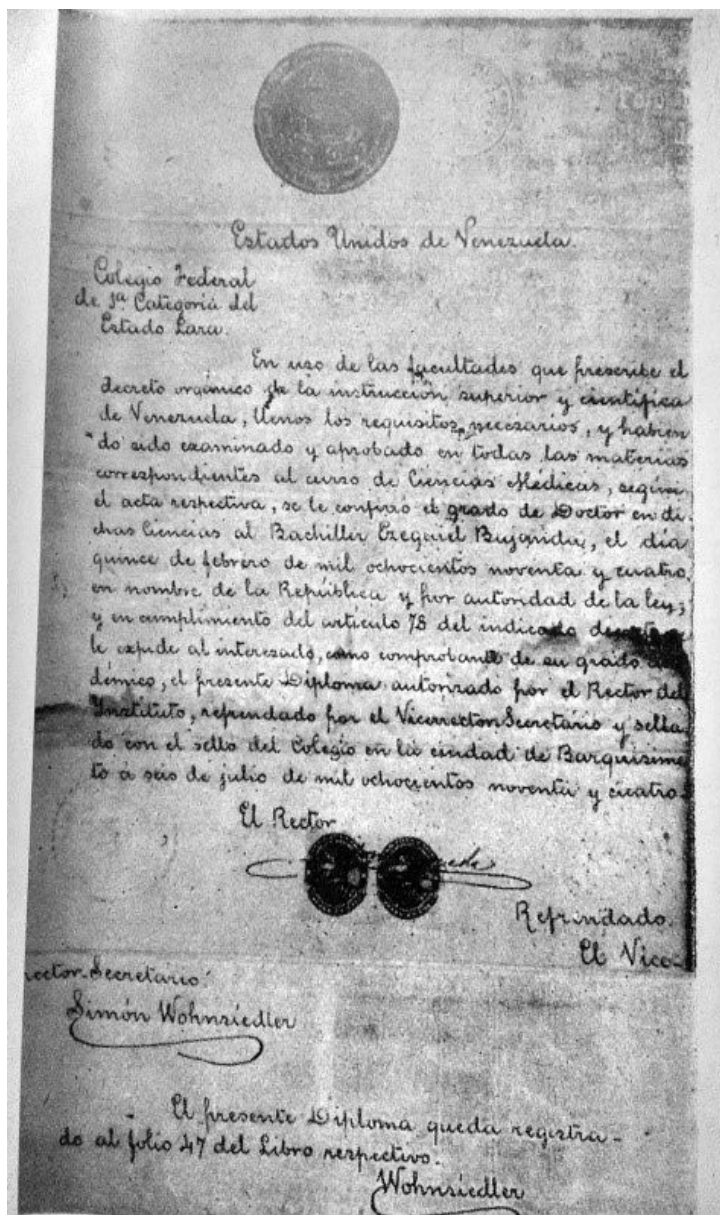 Estados Unidos de Venezuela.
Colegio Federal
de 1ª Categoría del
Estado Lara.
En uso de las facultades que prescribe el
decreto orgánico de la instrucción superior y científica
de Venezuela, llenos los requisitos necesarios, y habien
do sido examinado y aprobado en todas las materias
correspondientes al curso de Ciencias Médicas, según
el acta respectiva, se le confirió el grado de Doctor en di-
chas Ciencias al Bachiller Ezequiel Bujanda, el día
quince de febrero de mil ochocientos noventa y cuatro,
en nombre de la República y por autoridad de la ley;
y en cumplimento del artículo 78 del indicado
le expide al interesado, como comprobante de su grado
démico, el presente Diploma autorizado por el Rector del
Instituto, refrendado por el Vicerrector Secretario y sella
do con el sello del Colegio en la ciudad de Barquisime
to á seis de julio de mil ochocientos noventa y cuatro.
El Rector
Refrindado.
El Vice-
rector-Secretario
Simón Wohnsiedler
El presente Diploma queda registra-
do al folio 47 del Libro respectivo.
Wohnsiedler